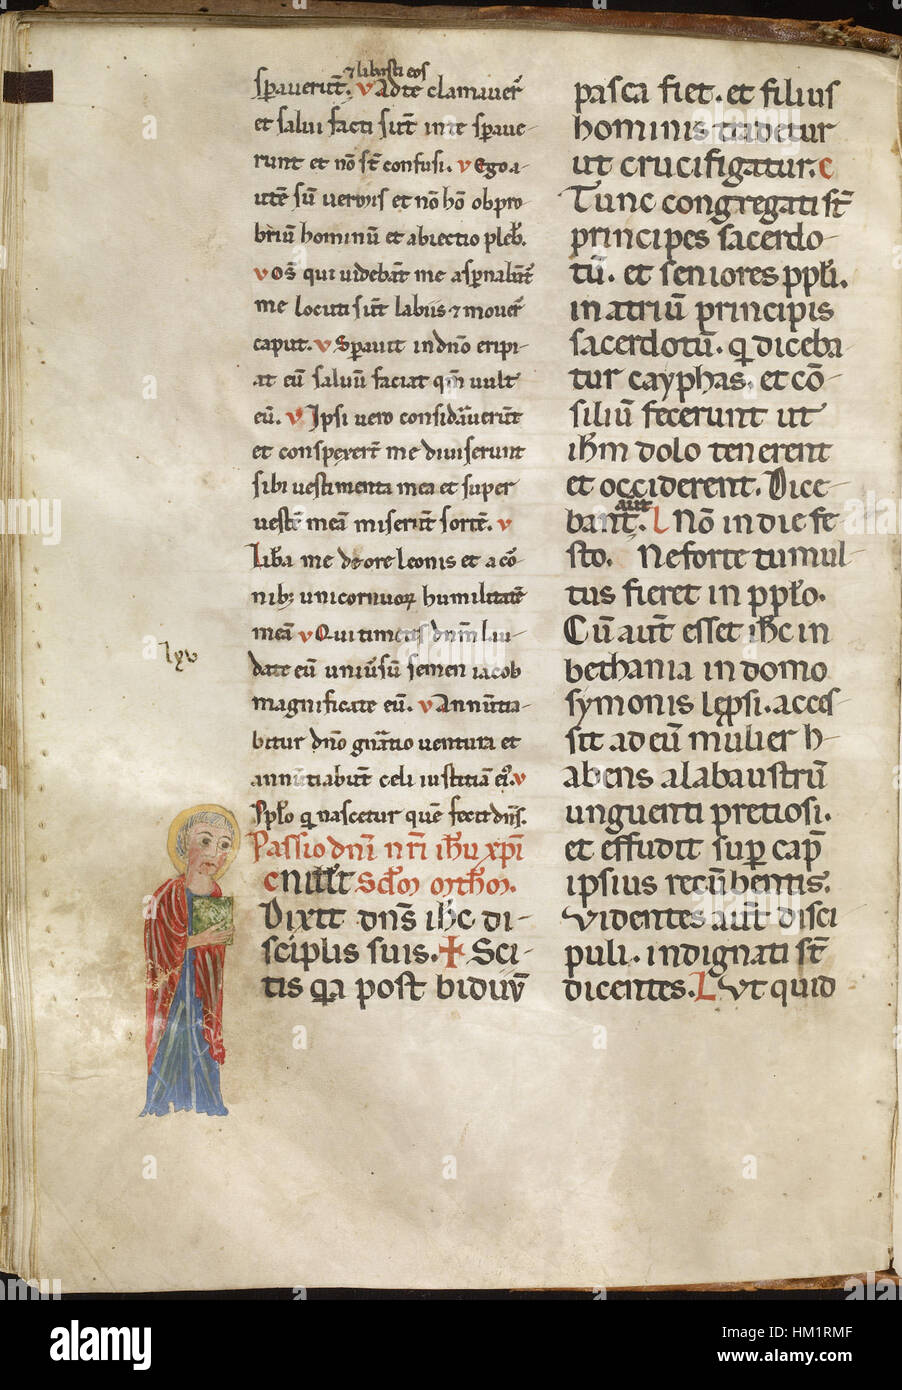 ⁊ liberasti eos
sp̄auerūt. v Ad te clamauer̄
et salui facti sūt in te sp̄aue-
runt et nō sт̄ confusi. v Ego a-
utē sū vermis et nō hō obpro
briū hominū et abiectio pleb̄.
v Oм̄s qui uidebāt me asp̄nabūt̄
me locuti sūt labiis ⁊ mouer̄
caput. v Sp̄auit in dn̄o eripi-
at eū saluū faciat qm̄ uult
eū. v Ipsi uero considāuerūt
et conspexer̄t me diuiserunt
sibi uestimenta mea et super
uestē meā miserūt sortē. v
Liba me de ore leonis et a cō-
nibꝫ unicornuoꝝ humilitatē
meā v Qui timetis dn̄m lau-
date eū uniūsū semen iacob
magnificate eū. v Annūtia-
bitur dn̄o gn̄atio uentura et
annūtiabūt celi iustitiā ei᷒. v
Pplo q̄ nascetur quē fecit dn̄s.
Passio dn̄i nr̄i ih̄u xp̄i
Sc̄dm mth̄m.
Dixit dn̄s ih̄c di-
scipl̄is suis. + Sci-
tis q̄a post biduū
lxv
pasca fiet. et filius
hominis tradetur
ut crucifigatur. c
Tunc congregati sт̄
principes sacerdo-
tū. et seniores ppl̄i.
in atriū principis
sacerdotū. q̄ diceba
tur cayphas. et cō-
siliū fecerunt ut
ih̄m dolo tenerent
et occiderent. Dice-
aut̄
bant̄. L Nō in die fe
sto. Ne forte tumul-
tus fieret in ppl̄o.
Cū aūt esset ih̄c in
bethania in domo
symonis lep̄si. acces-
sit ad eū mulier h-
abens alabaustrū
unguenti pretiosi.
et effudit sup̄ cap̄
ipsius recūbentis.
Videntes aūt disci
puli. indignati sт̄
dicentes. L Vt quid
alamy
Image ID: HM1RMF
www.alamy.com